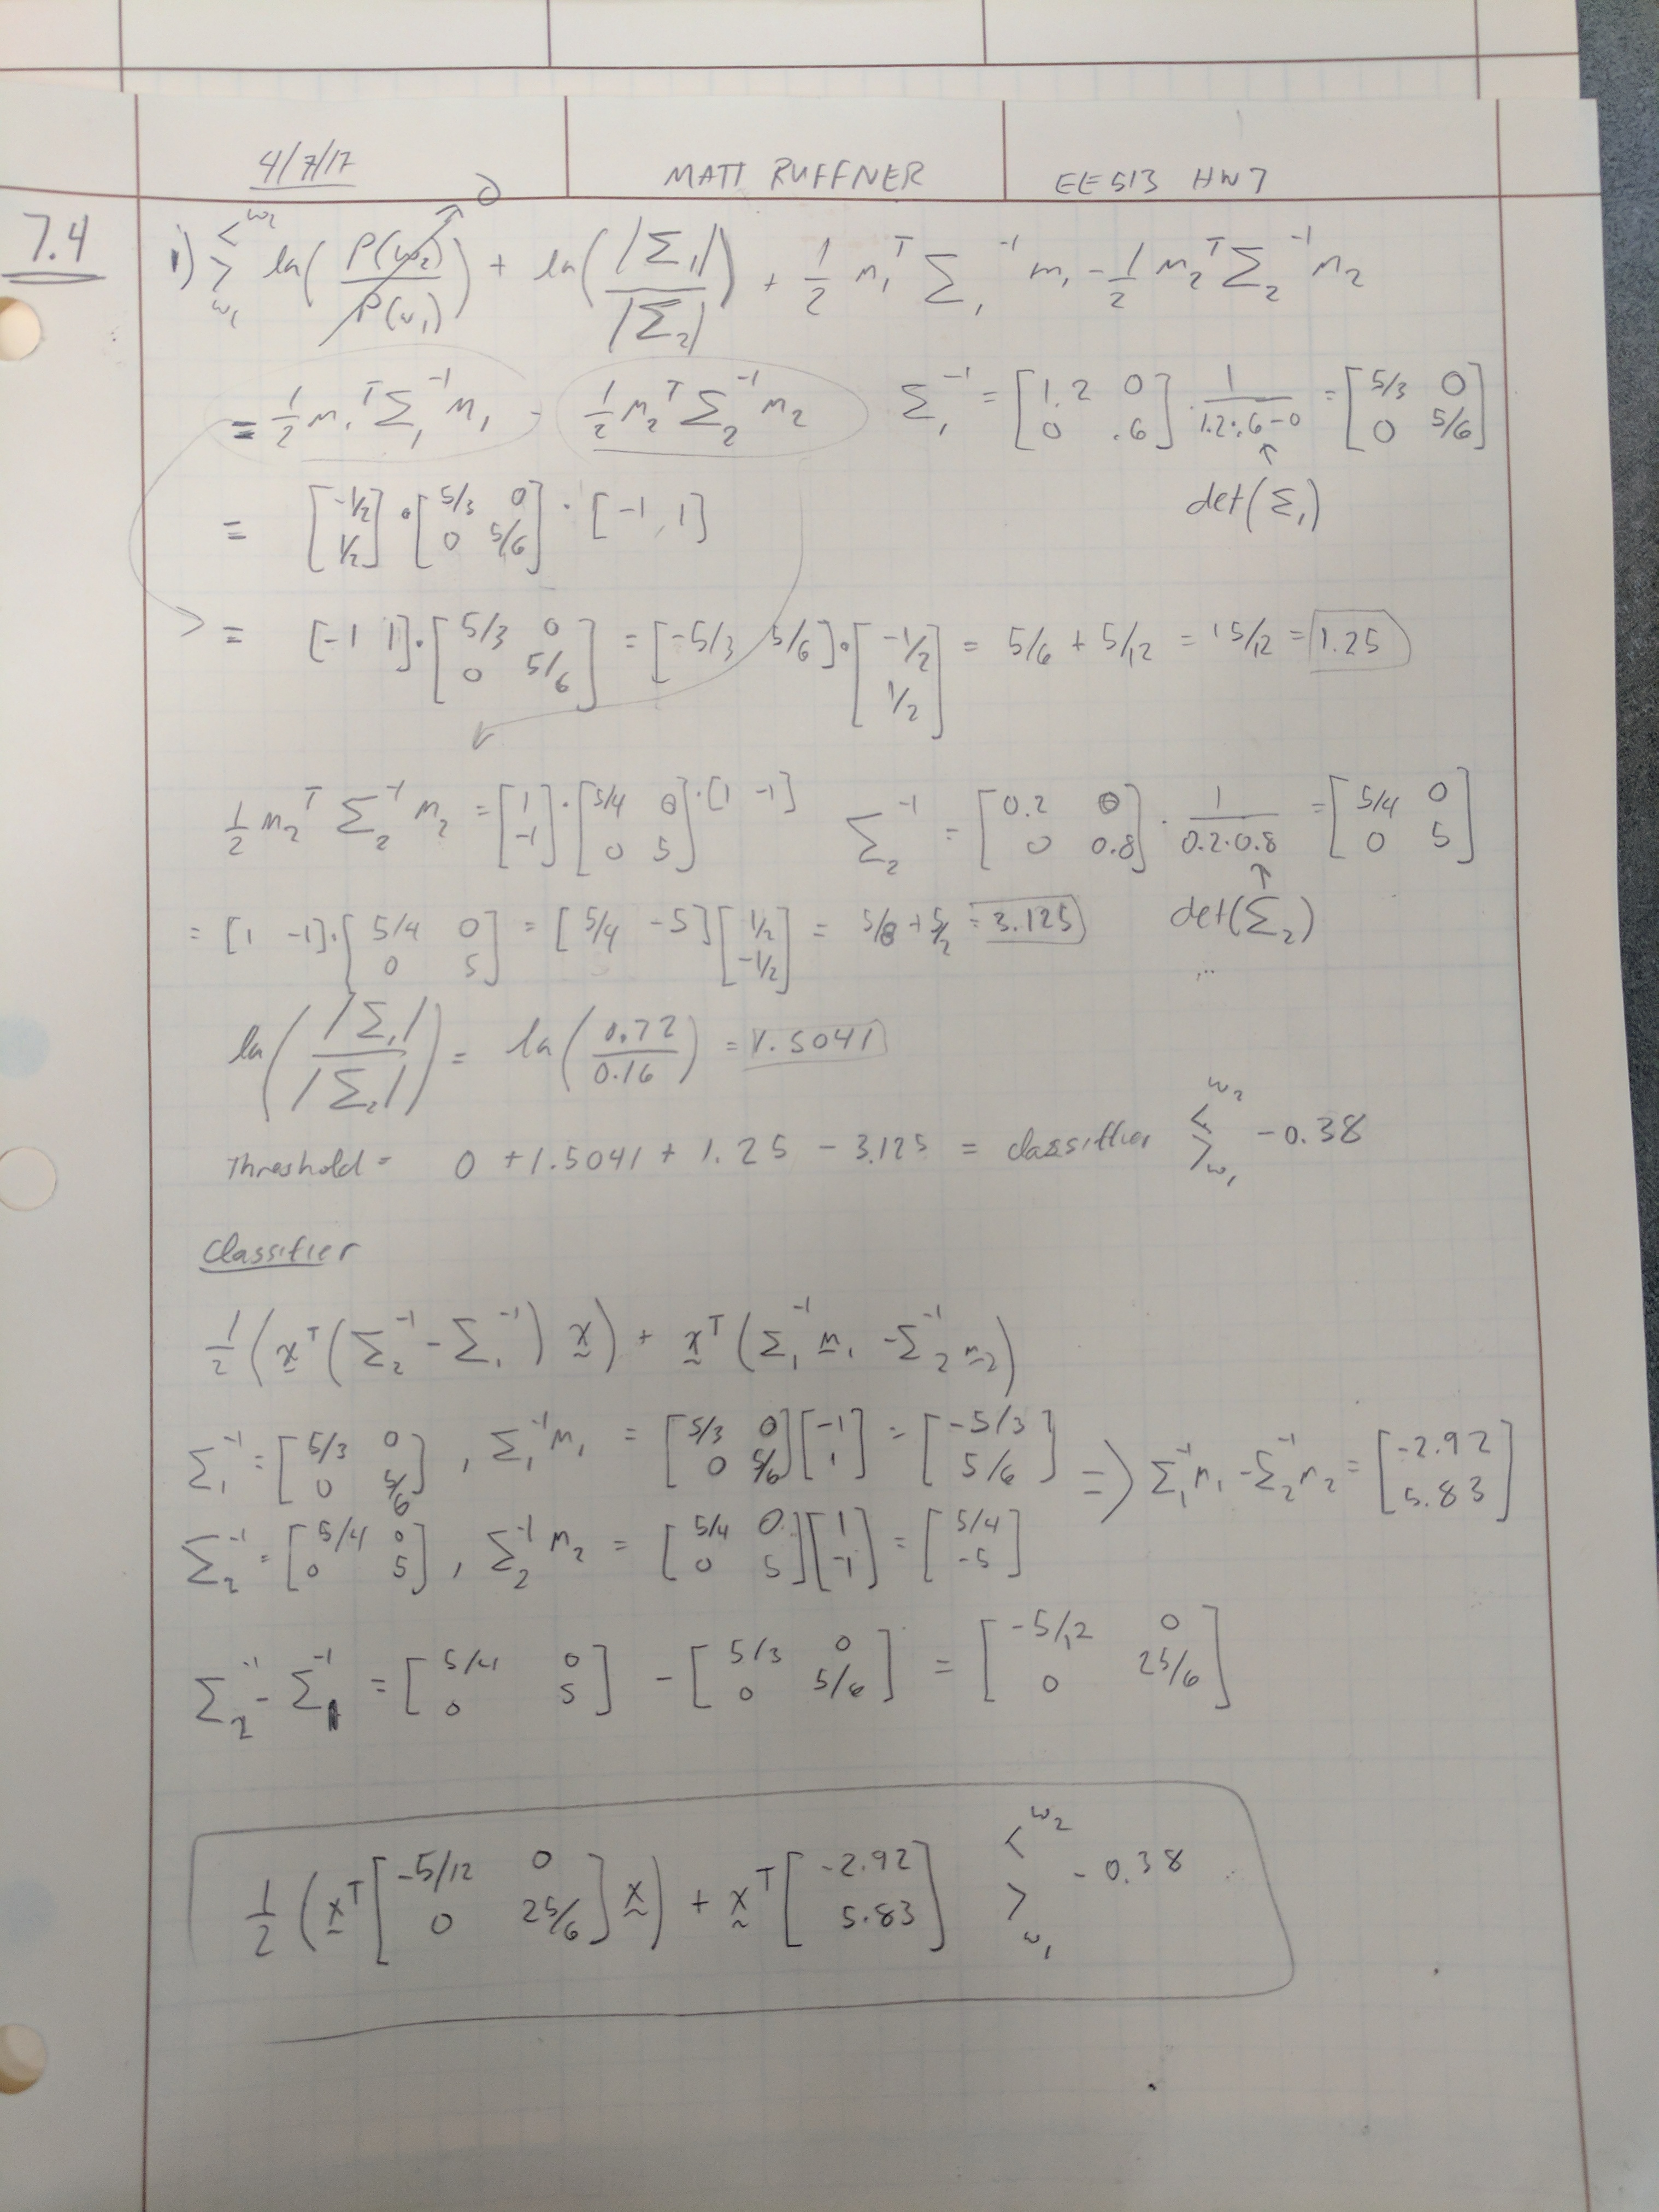 4/7/17 MATT RUFFNER EE513 HW7
7.4
1) <^ω₂ >_ω₁ ln(P(ω₂)/P(ω₁)) → 0 + ln(|Σ₁|/|Σ₂|) + 1/2 m₁ᵀ Σ₁⁻¹ m₁ - 1/2 m₂ᵀ Σ₂⁻¹ m₂
= 1/2 m₁ᵀ Σ₁⁻¹ m₁ - 1/2 m₂ᵀ Σ₂⁻¹ m₂ Σ₁⁻¹ = [1.2 0; 0 .6] · 1/(1.2·.6-0) = [5/3 0; 0 5/6]
↑ det(Σ₁)
= [-1/2; 1/2] · [5/3 0; 0 5/6] · [-1, 1]
= [-1 1] · [5/3 0; 0 5/6] = [-5/3 5/6] · [-1/2; 1/2] = 5/6 + 5/12 = 15/12 = 1.25
1/2 m₂ᵀ Σ₂⁻¹ m₂ = [1; -1] · [5/4 0; 0 5] · [1 -1] Σ₂⁻¹ = [0.2 0; 0 0.8] · 1/(0.2·0.8) = [5/4 0; 0 5]
↑ det(Σ₂)
= [1 -1] · [5/4 0; 0 5] = [5/4 -5] [1/2; -1/2] = 5/8 + 5/2 = 3.125
...
ln(|Σ₁|/|Σ₂|) = ln(0.72/0.16) = 1.5041
Threshold = 0 + 1.5041 + 1.25 - 3.125 = classiffier <^ω₂ >_ω₁ -0.38
Classifier
1/2 (xᵀ(Σ₂⁻¹ - Σ₁⁻¹) x) + xᵀ(Σ₁⁻¹ m₁ - Σ₂⁻¹ m₂)
Σ₁⁻¹ = [5/3 0; 0 5/6], Σ₁⁻¹ m₁ = [5/3 0; 0 5/6] [-1; 1] = [-5/3; 5/6] => Σ₁⁻¹ m₁ - Σ₂⁻¹ m₂ = [-2.92; 5.83]
Σ₂⁻¹ = [5/4 0; 0 5], Σ₂⁻¹ m₂ = [5/4 0; 0 5] [1; -1] = [5/4; -5]
Σ₂⁻¹ - Σ₁⁻¹ = [5/4 0; 0 5] - [5/3 0; 0 5/6] = [-5/12 0; 0 25/6]
1/2 (xᵀ [-5/12 0; 0 25/6] x) + xᵀ [-2.92; 5.83] <^ω₂ >_ω₁ -0.38